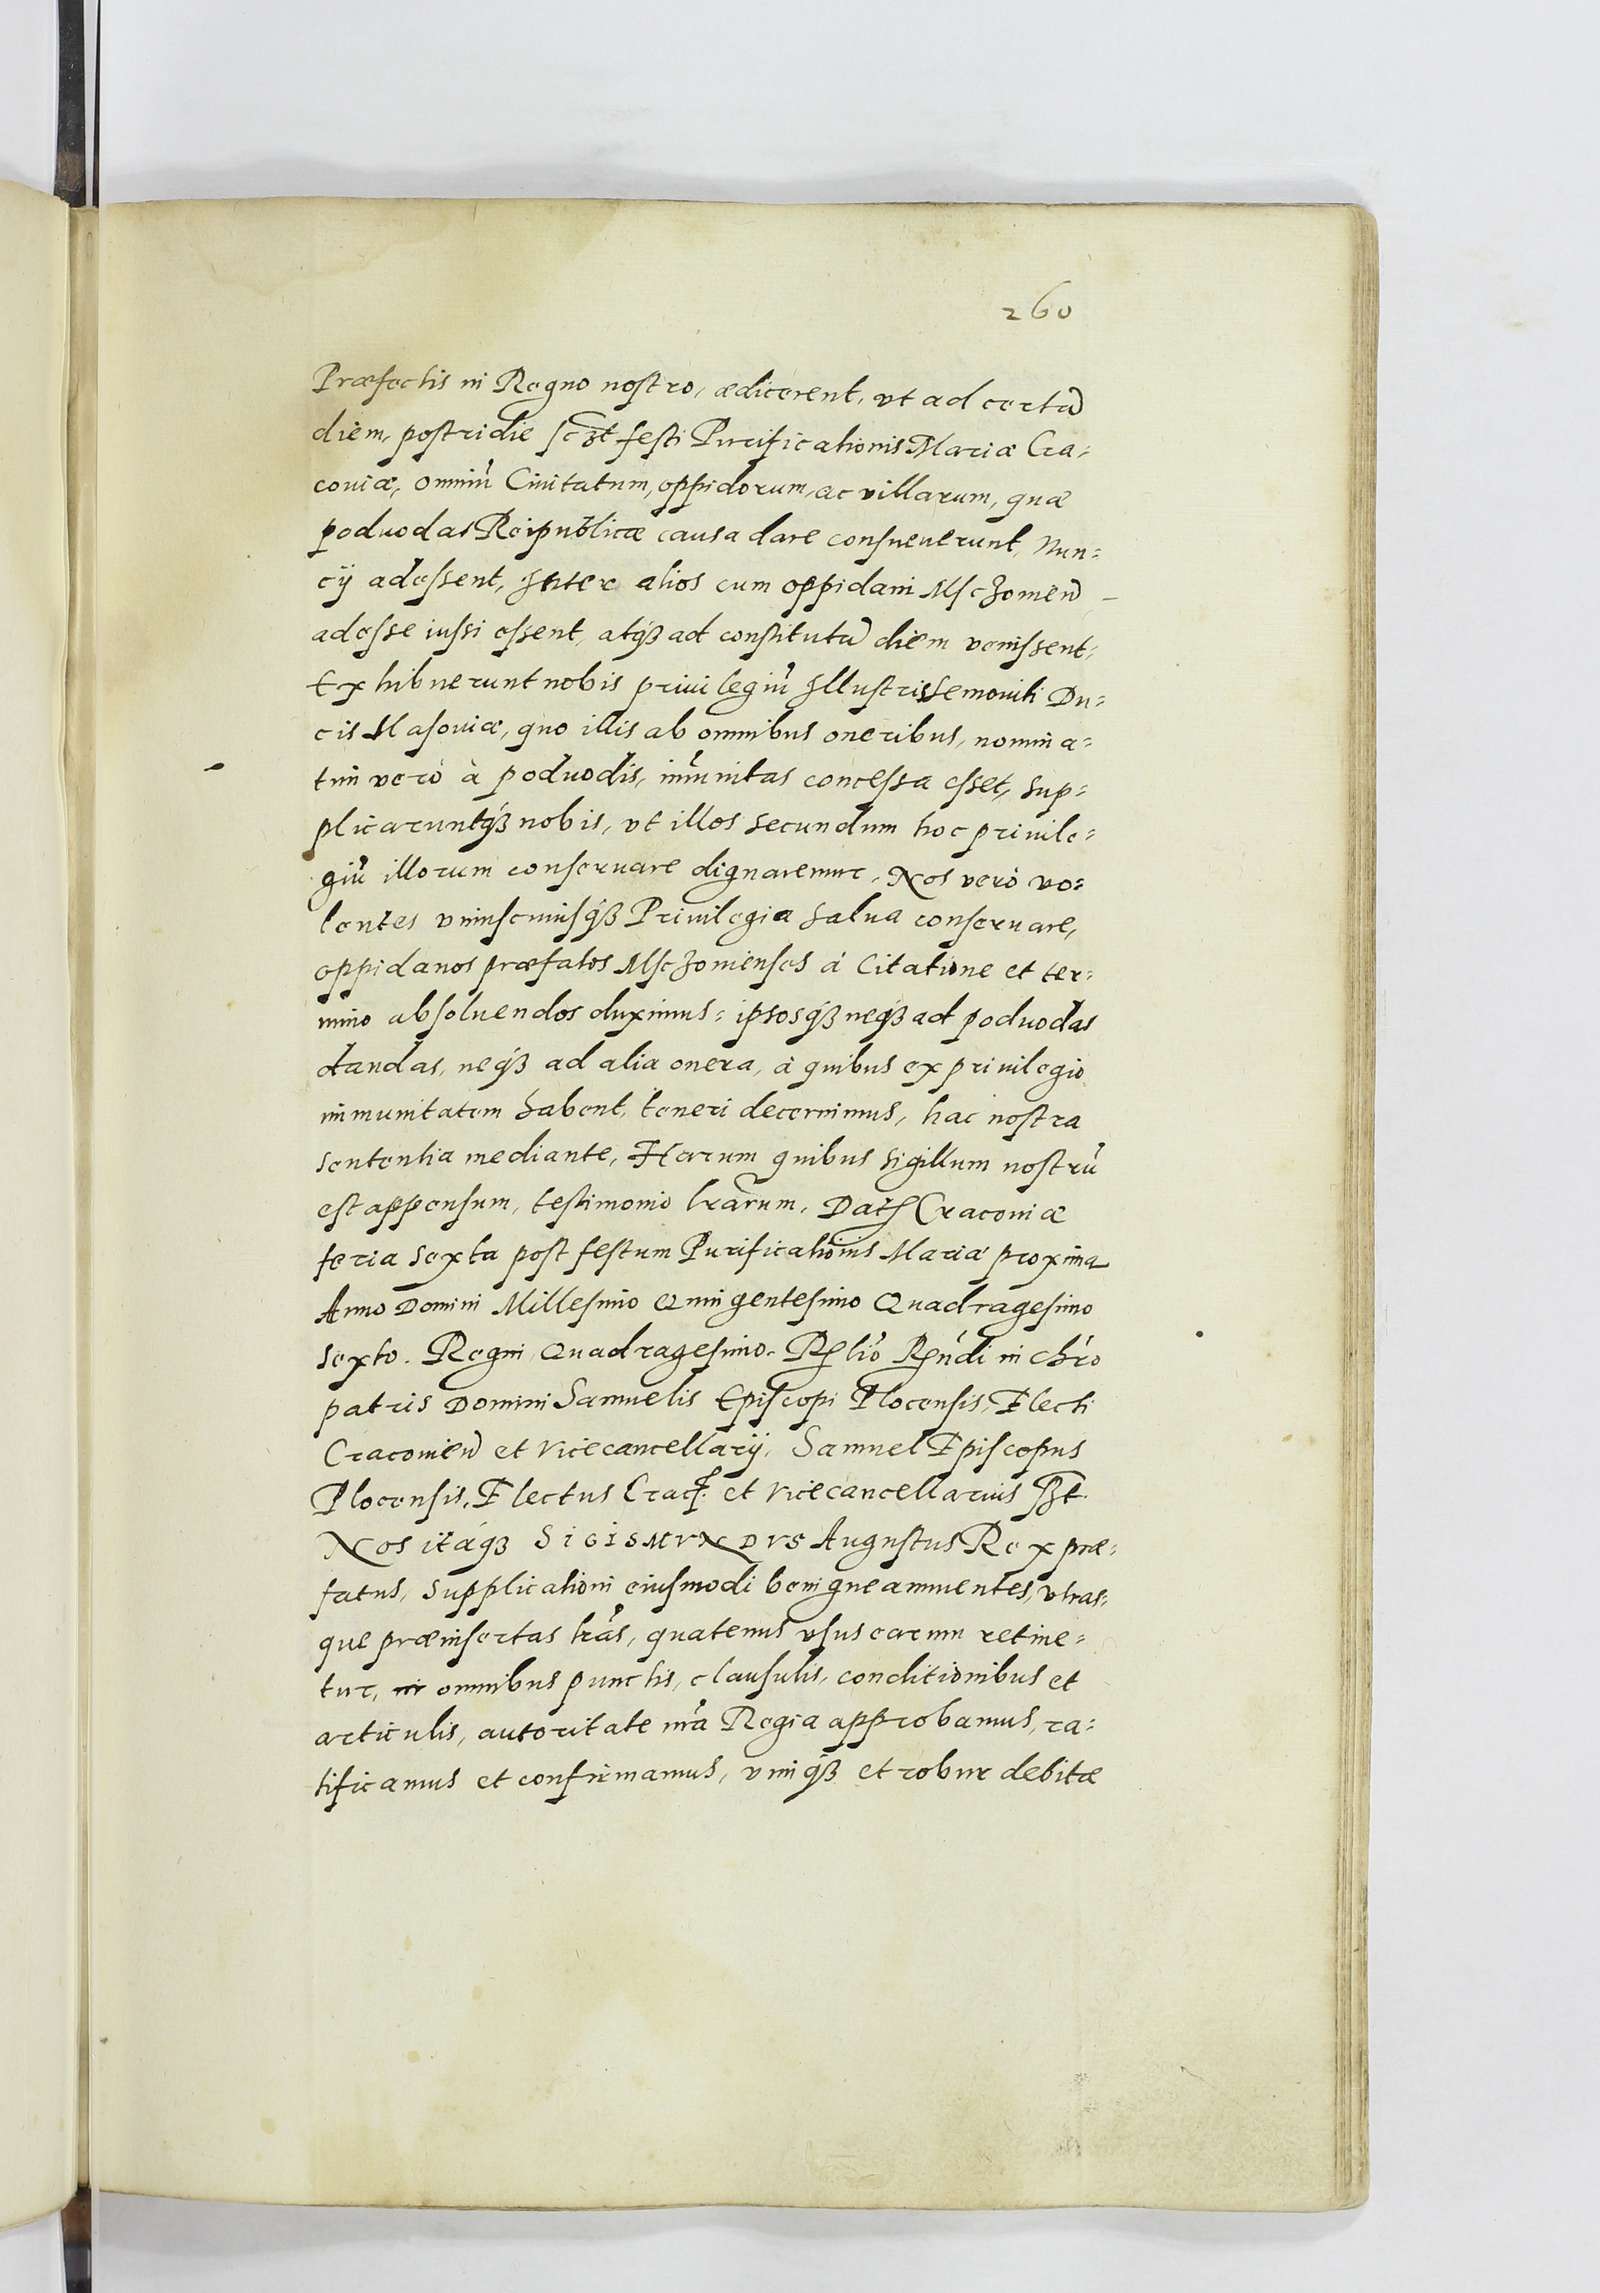 260
Præfectis in Regno nostro, ædicerent, vt ad certũ
diem, postridie scꝫt festi Purificationis Mariæ Cra=
couiæ, omniũ Ciuitatum, oppidorum, ac villarum, quæ
poduodas Reipublicæ causa dare consueuerunt, Nun=
cij adessent, Inter alios cum oppidani Msczomieñ
adesse iussi essent, atqꝫ ad constitutũ diem venissent,
Exhibuerunt nobis priuilegiũ Illustris Semouiti Du=
cis Masouiæ, quo illis ab omnibus oneribus, nomina=
tim verò à poduodis, im̃unitas concessa esset, sup=
plicaruntqꝫ nobis, vt illos secundum hoc priuile=
giũ illorum conseruare dignaremur. Nos verò vo=
lentes vniuscuiusqꝫ Priuilegia salua conseruare,
oppidanos præfatos Msczonienses à Citatione et ter=
mino absoluendos duximus: ipsosqꝫ neqꝫ ad poduodas
dandas, neqꝫ ad alia onera, à quibus ex priuilegio
immunitatem habent, teneri decernimus, hac nostra
sententia mediante, Harum quibus sigillum nostrũ
est appensum, testimonio lrãrum. Datꝭ Cracouiæ
feria sexta post festum Purificationis Mariæ proxima
Anno Domini Millesimo Quingentesimo Quadragesimo
sexto. Regni Quadragesimo. Rꝭlio Rꝭńdi in chřo
patris Domini Samuelis Episcopi Plocensis, Electi
Cracouieñ et Vicecancellarij, Samuel Episcopus
Plocensis, Electus Cracꝭ. et Vicecancellarius sꝫt.
Nos itáqꝫ SIGISMVNDVS Augustus Rex præ=
fatus, supplicationi eiusmodi benigne annuentes, vtras=
que præinsertas lrãs, quatenus vsus earum retine=
tur, in omnibus punctis, clausulis, conditionibus et
articulis, autoritate nrã Regia approbamus, ra=
tificamus et confirmamus, vimqꝫ et robur debitæ